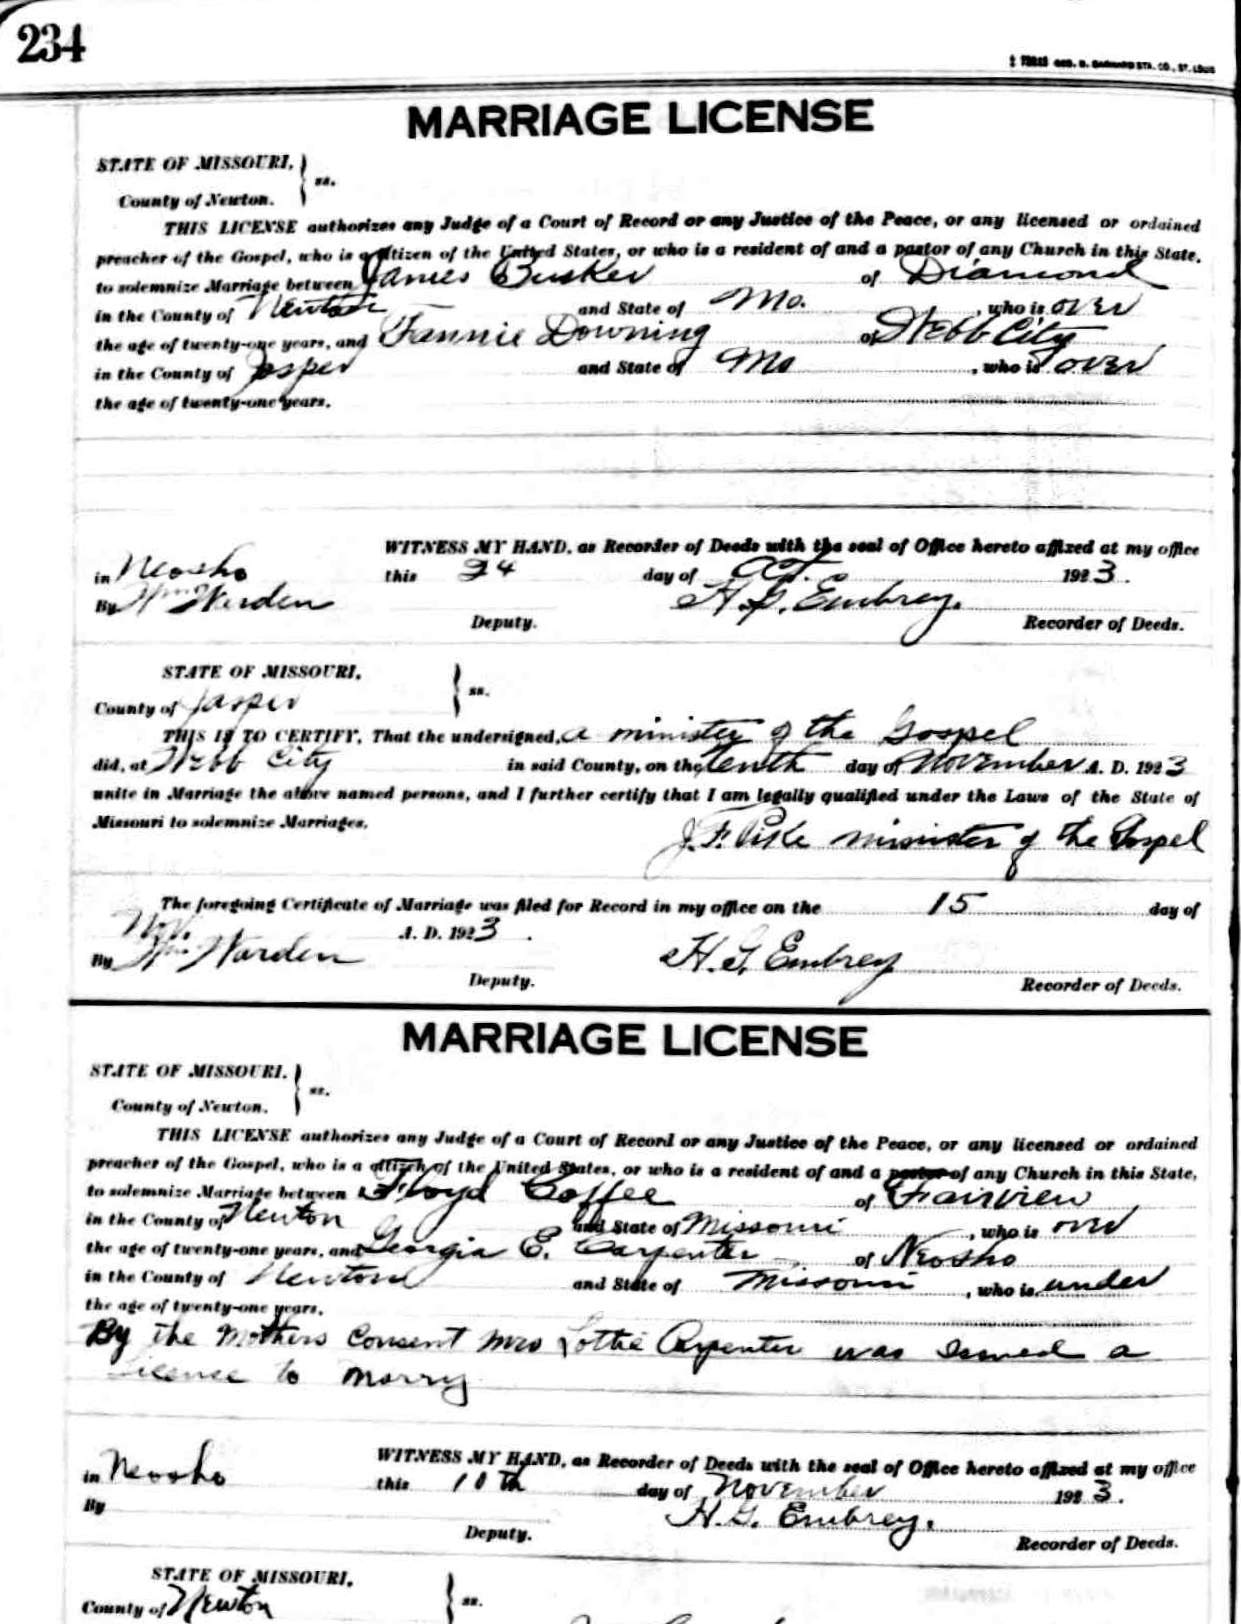 234
GEO. D. BARNARD STA. CO., ST. LOUIS
MARRIAGE LICENSE
STATE OF MISSOURI,
ss.
County of Newton.
THIS LICENSE authorizes any Judge of a Court of Record or any Justice of the Peace, or any licensed or ordained
preacher of the Gospel, who is a citizen of the United States, or who is a resident of and a pastor of any Church in this State,
to solemnize Marriage between James Busker of Diamond
in the County of Newton and State of Mo. , who is over
the age of twenty-one years, and Fannie Downing of Webb City
in the County of Jasper and State of Mo , who is over
the age of twenty-one years.
WITNESS MY HAND, as Recorder of Deeds with the seal of Office hereto affixed at my office
in Neosho this 24 day of Oct. 1923.
By Wm Warden H. G. Embrey.
Deputy. Recorder of Deeds.
STATE OF MISSOURI,
ss.
County of Jasper
THIS IS TO CERTIFY, That the undersigned, a minister of the Gospel
did, at Webb City in said County, on the tenth day of November A. D. 1923
unite in Marriage the above named persons, and I further certify that I am legally qualified under the Laws of the State of
Missouri to solemnize Marriages.
J. F. Pike minister of the Gospel
The foregoing Certificate of Marriage was filed for Record in my office on the 15 day of
Nov. A. D. 1923.
By Wm Warden H. G. Embrey
Deputy. Recorder of Deeds.
MARRIAGE LICENSE
STATE OF MISSOURI.
ss.
County of Newton.
THIS LICENSE authorizes any Judge of a Court of Record or any Justice of the Peace, or any licensed or ordained
preacher of the Gospel, who is a citizen of the United States, or who is a resident of and a pastor of any Church in this State,
to solemnize Marriage between Floyd Coffee of Fairview
in the County of Newton and State of Missouri , who is over
the age of twenty-one years, and Georgia E. Carpenter of Neosho
in the County of Newton and State of Missouri , who is under
the age of twenty-one years.
By the Mothers Consent Mrs Lottie Carpenter was Issued a
License to marry
WITNESS MY HAND, as Recorder of Deeds with the seal of Office hereto affixed at my office
in Neosho this 10th day of November 1923.
By H. G. Embrey.
Deputy. Recorder of Deeds.
STATE OF MISSOURI,
ss.
County of Newton